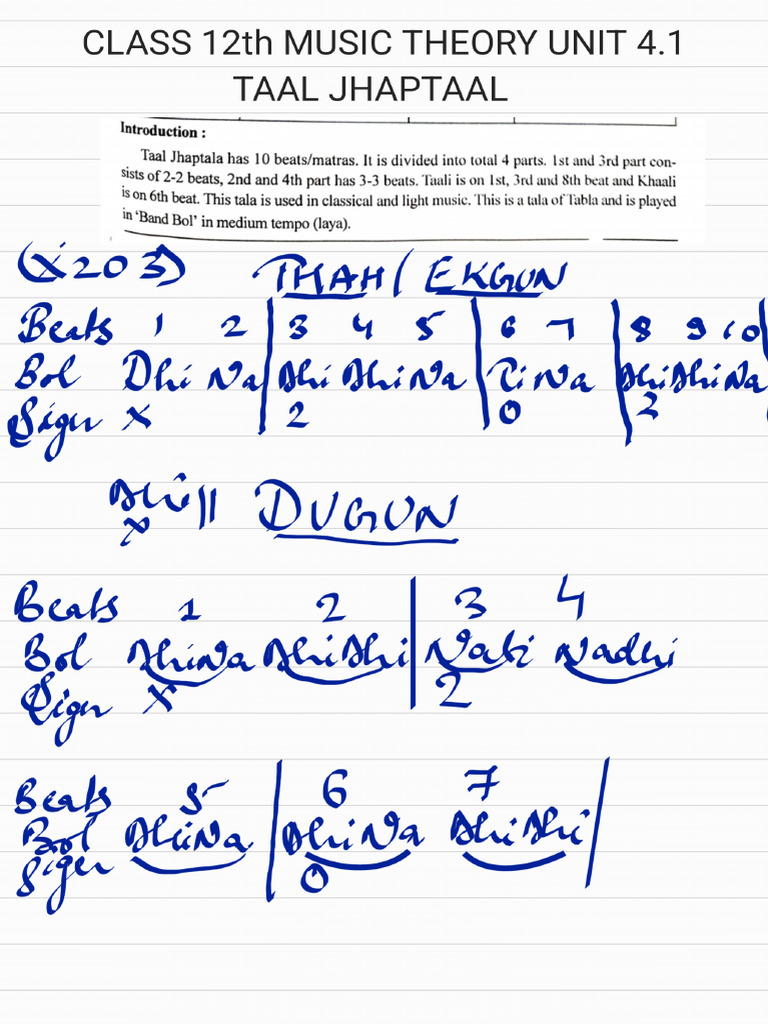 CLASS 12th MUSIC THEORY UNIT 4.1
TAAL JHAPTAAL
Introduction :
Taal Jhaptala has 10 beats/matras. It is divided into total 4 parts. 1st and 3rd part con-
sists of 2-2 beats, 2nd and 4th part has 3-3 beats. Taali is on 1st, 3rd and 8th beat and Khaali
is on 6th beat. This tala is used in classical and light music. This is a tala of Tabla and is played
in 'Band Bol' in medium tempo (laya).
(X 2 0 3) THAH / EKGUN
Beats 1 2 | 3 4 5 | 6 7 | 8 9 10 |
Bol Dhi Na | Dhi Dhi Na | Ti Na | Dhi Dhi Na
Sign X 2 0 3
Dhi ||
X
DUGUN
Beats 1 2 | 3 4
Bol DhiNa DhiDhi | NaTi Nadhi
Sign X 2
Beats 5 | 6 7 |
Bol DhiNa | DhiNa DhiDhi |
Sign 0